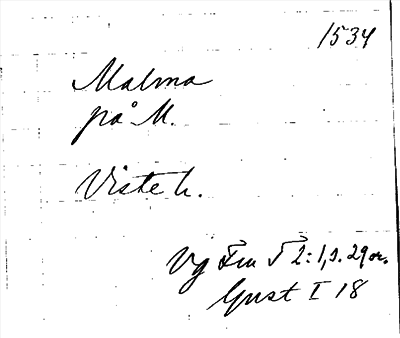 1534
Malma
på M.
Viste h.
Vg Fru 5 2:1, s. 29 or.
Gust I 18